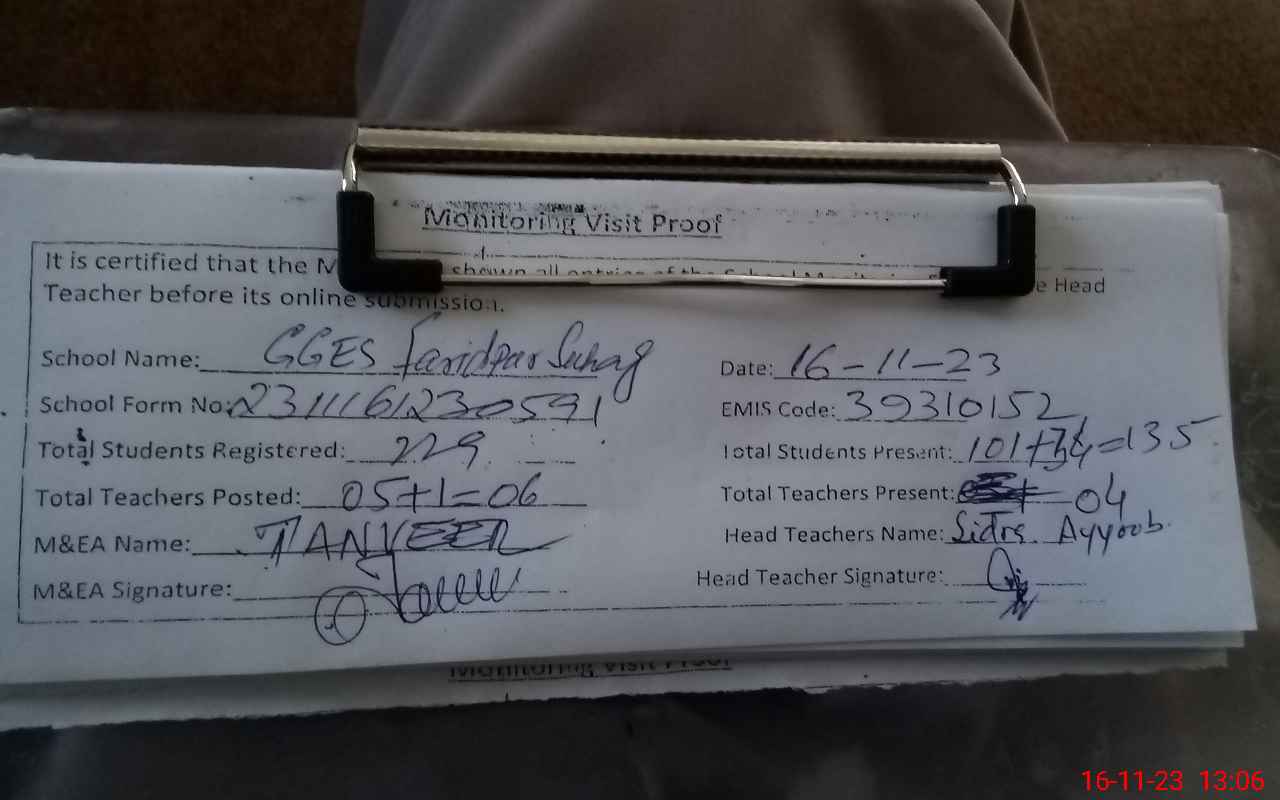 Monitoring Visit Proof
It is certified that the M shown all entries of the School e Head
Teacher before its online submission.
School Name: GGES Faridpur Suhag Date: 16-11-23
School Form No: 2311161230591 EMIS Code: 39310152
Total Students Registered: 229 Total Students Present: 101+34=135
Total Teachers Posted: 05+1=06 Total Teachers Present: 04
M&EA Name: TANVEER Head Teachers Name: Sidra Ayyoob
M&EA Signature: Head Teacher Signature:
Monitoring Visit Proof
16-11-23 13:06